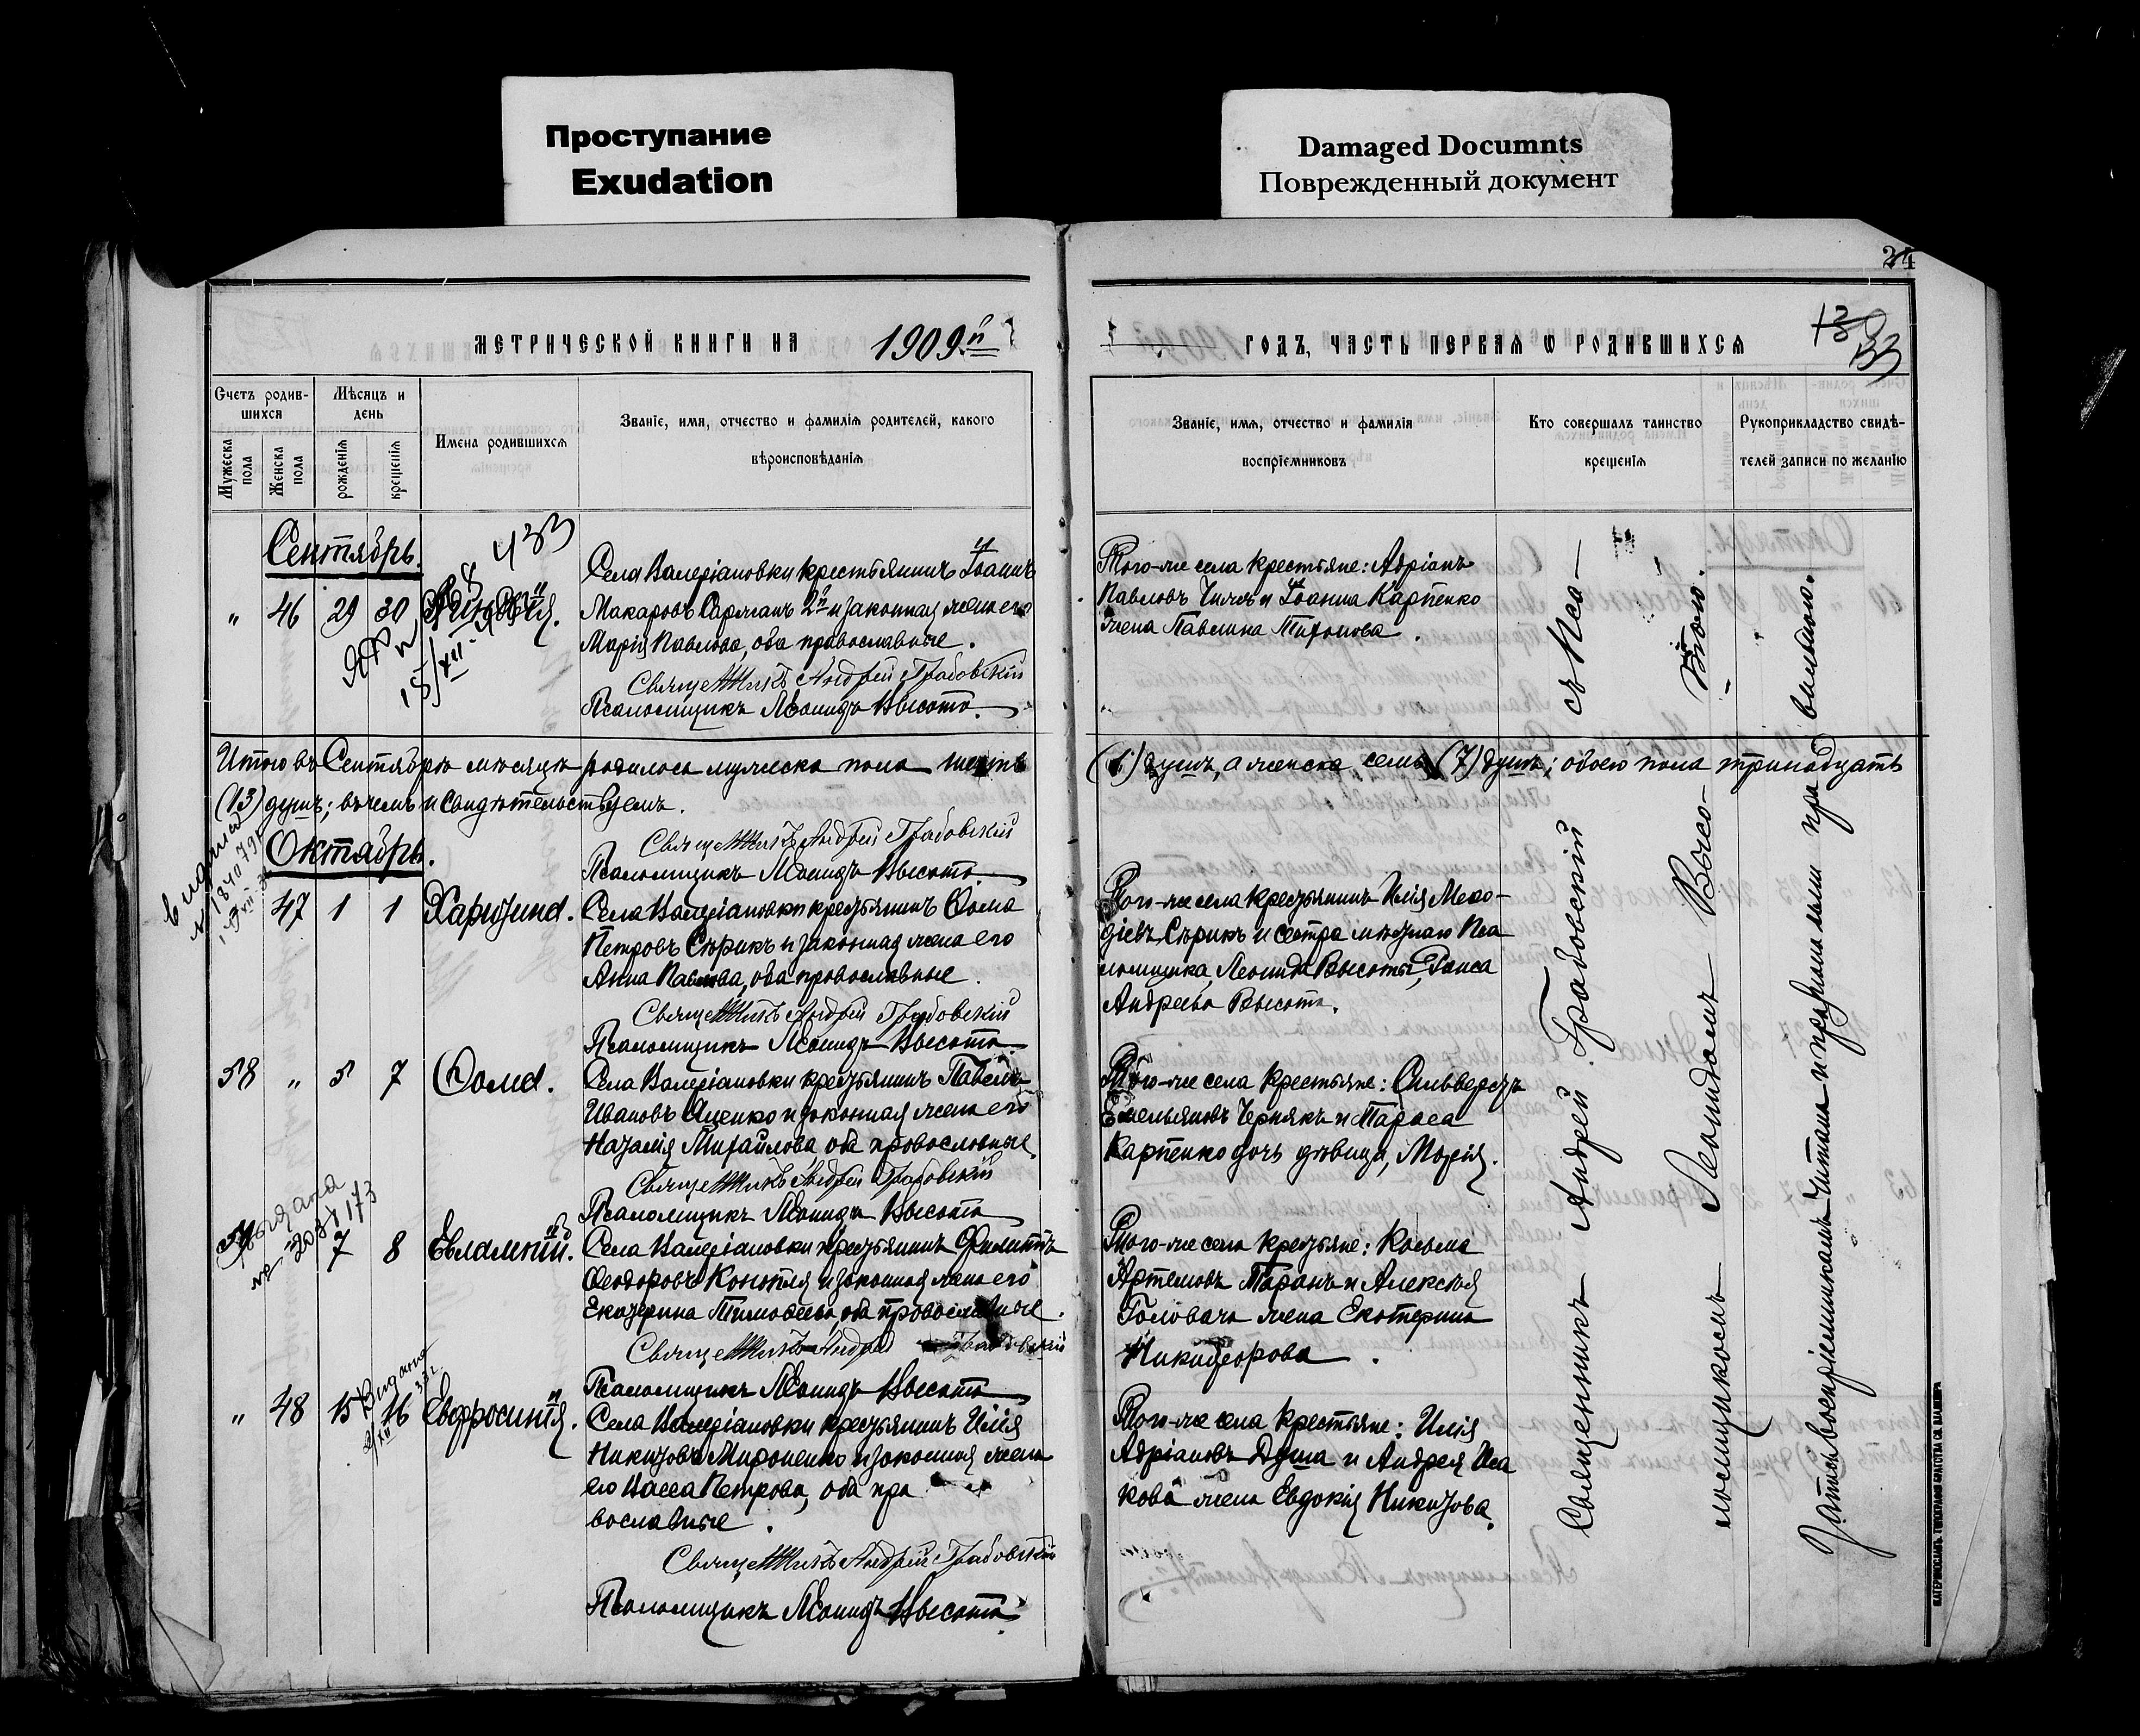 Проступание
Exudation
Damaged Documnts
Поврежденный документ
24
МЕТРИЧЕСКОЙ КНИГИ НА 1909й
ГОДЪ, ЧАСТЬ ПЕРВАЯ Ѡ РОДИВШИХСЯ
133
Счетъ родив-
шихся
Мужеска пола
Женска пола
Мѣсяцъ и
день
рожденія
крещенія
Имена родившихся
Званіе, имя, отчество и фамилія родителей, какого
вѣроисповѣданія
Званіе, имя, отчество и фамилія
воспріемниковъ
Кто совершалъ таинство
крещенія
Рукоприкладство свидѣ-
телей записи по желанію
Сентябрь.
433
" 46 29 30
Села Валеріановки крестьянинъ Іоаннъ
Макаровъ Сарманъ 2й и законная жена его
Марія Павлова, оба православные.
Священникъ Андрей Грабовскій
Псаломщикъ Леонидъ Высота.
Того-же села крестьяне: Адріанъ
Павловъ и Іоанна Карпенко
жена Павлина
Итого въ Сентябрѣ мѣсяцѣ родилось мужеска пола шесть
(6) душъ, а женска семь (7) душъ; обоего пола тринадцать
(13) душъ; въ чемъ и свидѣтельствуемъ.
Священникъ Андрей Грабовскій
Псаломщикъ Леонидъ Высота.
Октябрь.
47 1 1 Харитина.
Села Валеріановки крестьянинъ Ѳома
Петровъ Сѣрикъ и законная жена его
Анна Павлова, оба православные.
Священникъ Андрей Грабовскій
Псаломщикъ Леонидъ Высота.
Того-же села крестьянинъ Илія Меѳо-
діевъ Сѣрикъ и сестра мѣстнаго Пса
ломщика, Леонида Высоты, Таиса
Андреева Высота.
58 " 5 7 Ѳома.
Села Валеріановки крестьянинъ Павелъ
Ивановъ Яценко и законная жена его
Наталія Михайлова, оба православные.
Священникъ Андрей Грабовскій
Псаломщикъ Леонидъ Высота
Того-же села крестьяне: Сильвестръ
Емельяновъ Чернякъ и Тараса
Карпенко дочь дѣвица, Марія.
Выдана
59 7 8 Евлампій.
Села Валеріановки крестьянинъ Филиппъ
Ѳеодоровъ Конопля и законная жена его
Екатерина Тимоѳеева, оба православные.
Священникъ Андрей Грабовскій
Псаломщикъ Леонидъ Высота
Того-же села крестьяне: Косьма
Артемовъ Таранъ и Алексѣя
Головача жена Екатерина
Никифорова.
" 48 15 16 Евфросинія.
Села Валеріановки крестьянинъ Илія
Никитовъ Мироненко и законная жена
его Васса Петрова, оба пра
вославные.
Священникъ Андрей Грабовскій
Псаломщикъ Леонидъ Высота.
Того-же села крестьяне: Илія
Адріановъ Душа и Андрея Иса
кова жена Евдокія Никитова.
Священникъ Андрей Грабовскій съ Пса-
ломщикомъ Леонидомъ Высо-
тою.